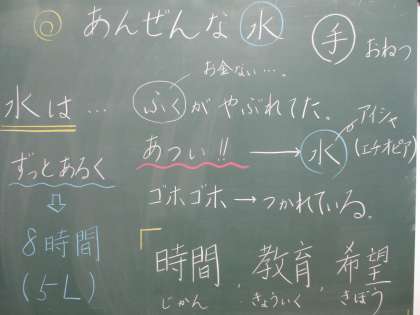 ◎ あんぜんな水 手 おねつ
お金ない…。
水は… ふくがやぶれてた。
ずっとあるく あつい!! → 水 アイシャ
(エチオピア)
⇩ ゴホゴホ→つかれている。
8時間
(5L)
「時間、教育、希望
じかん きょういく きぼう